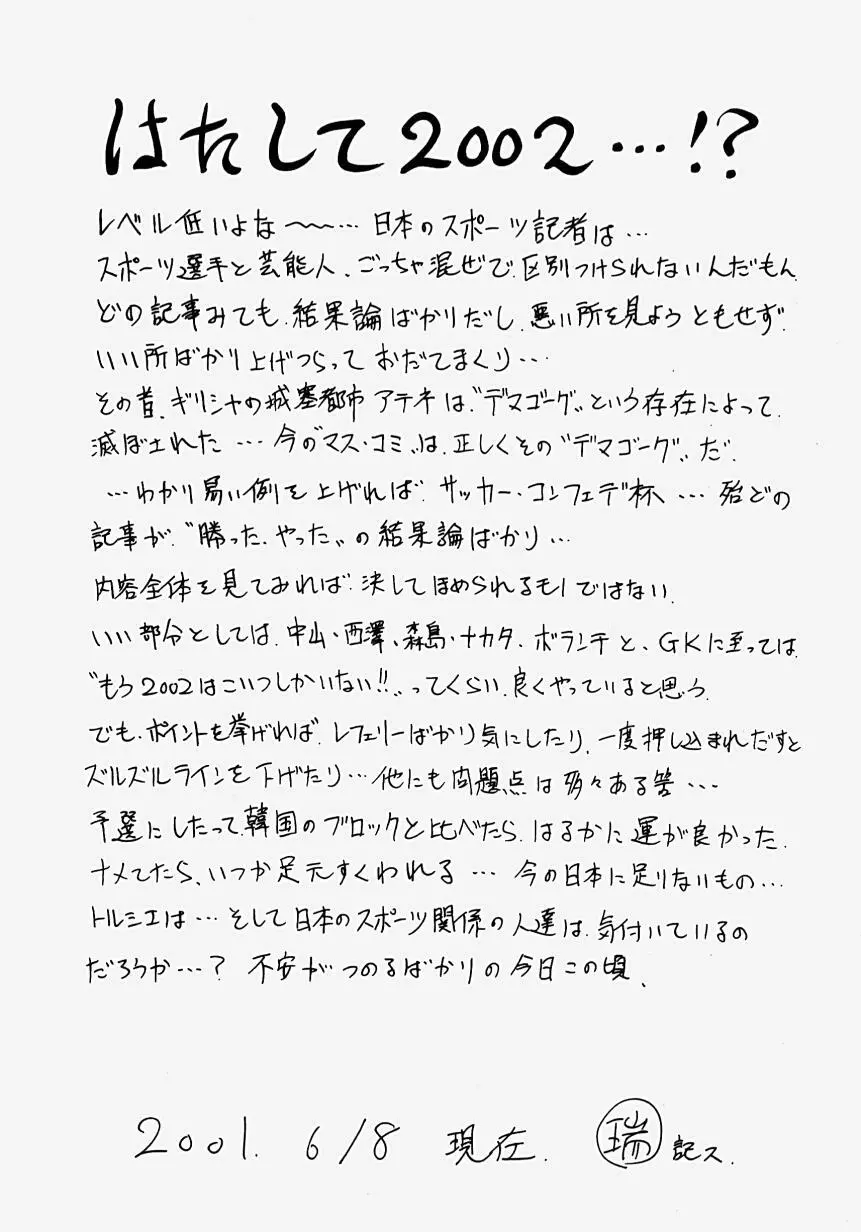 はたして2002…!?
レベル低いよな〜〜…日本のスポーツ記者は…
スポーツ選手と芸能人、ごっちゃ混ぜで区別つけられないんだもん
どの記事みても、結果論ばかりだし、悪い所を見ようともせず
いい所ばかり上げつらって おだてまくり…
その昔、ギリシャの城塞都市アテネは、“デマゴーグ„という存在によって、
滅ぼされた…今の“マス・コミ„は、正しくその“デマゴーグ„だ。
…わかり易い例を上げれば、サッカー・コンフェデ杯…殆どの
記事が、“勝った、やった„の結果論ばかり…
内容全体を見てみれば、決してほめられるモノではない。
いい部分としては、中山・西澤、森島・ナカタ、ボランチと、GKに至っては、
“もう2002はこいつしかいない!!„ってくらい、良くやっていると思う。
でも、ポイントを挙げれば、レフェリーばかり気にしたり、一度押し込まれだすと
ズルズルラインを下げたり…他にも問題点は多々ある筈…
予選にしたって、韓国のブロックと比べたら、はるかに運が良かった。
ナメてたら、いつか足元すくわれる…今の日本に足りないもの…
トルシエは…そして日本のスポーツ関係の人達は、気付いているの
だろうか…? 不安がつのるばかりの今日この頃、
2001. 6/8 現在. 瑞 記ス.